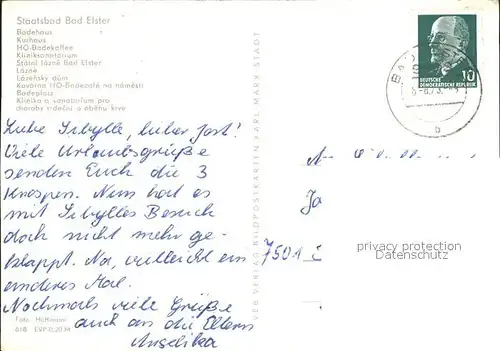 Staatsbad Bad Elster
Badehaus
Kurhaus
HO-Badekaffee
Kliniksanatorium
Státní lázně Bad Elster
Lázně
Lázeňský dům
Kavárna HO-Badecafé na náměstí
Badeplatz
Klinika a sanatorium pro
choroby srdeční a oběhu krve
Liebe Sibylle, lieber Jost!
Viele Urlaubsgrüße
senden Euch die 3
Knospen. Nun hat es
mit Sibylles Besuch
doch nicht mehr ge-
klappt. Na, vielleicht ein
anderes Mal.
Nochmals viele Grüße
auch an die Eltern
Angelika
Foto: Hoffmann
618 EVP 0,20 M
VEB VERLAG BILDPOSTKARTEN KARL MARX STADT
DEUTSCHE
DEMOKRATISCHE REPUBLIK
10
BAD
b
7501
privacy protection
Datenschutz